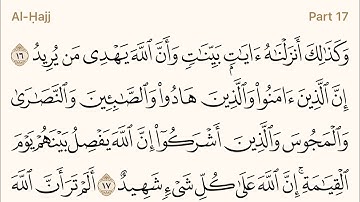 Al-Ḥajj
Part 17
وَكَذَٰلِكَ أَنزَلْنَٰهُ ءَايَٰتٍۭ بَيِّنَٰتٍ وَأَنَّ ٱللَّهَ يَهْدِى مَن يُرِيدُ ١٦
إِنَّ ٱلَّذِينَ ءَامَنُوا۟ وَٱلَّذِينَ هَادُوا۟ وَٱلصَّٰبِـِٔينَ وَٱلنَّصَٰرَىٰ
وَٱلْمَجُوسَ وَٱلَّذِينَ أَشْرَكُوٓا۟ إِنَّ ٱللَّهَ يَفْصِلُ بَيْنَهُمْ يَوْمَ
ٱلْقِيَٰمَةِ ۚ إِنَّ ٱللَّهَ عَلَىٰ كُلِّ شَىْءٍ شَهِيدٌ ١٧ أَلَمْ تَرَ أَنَّ ٱللَّهَ